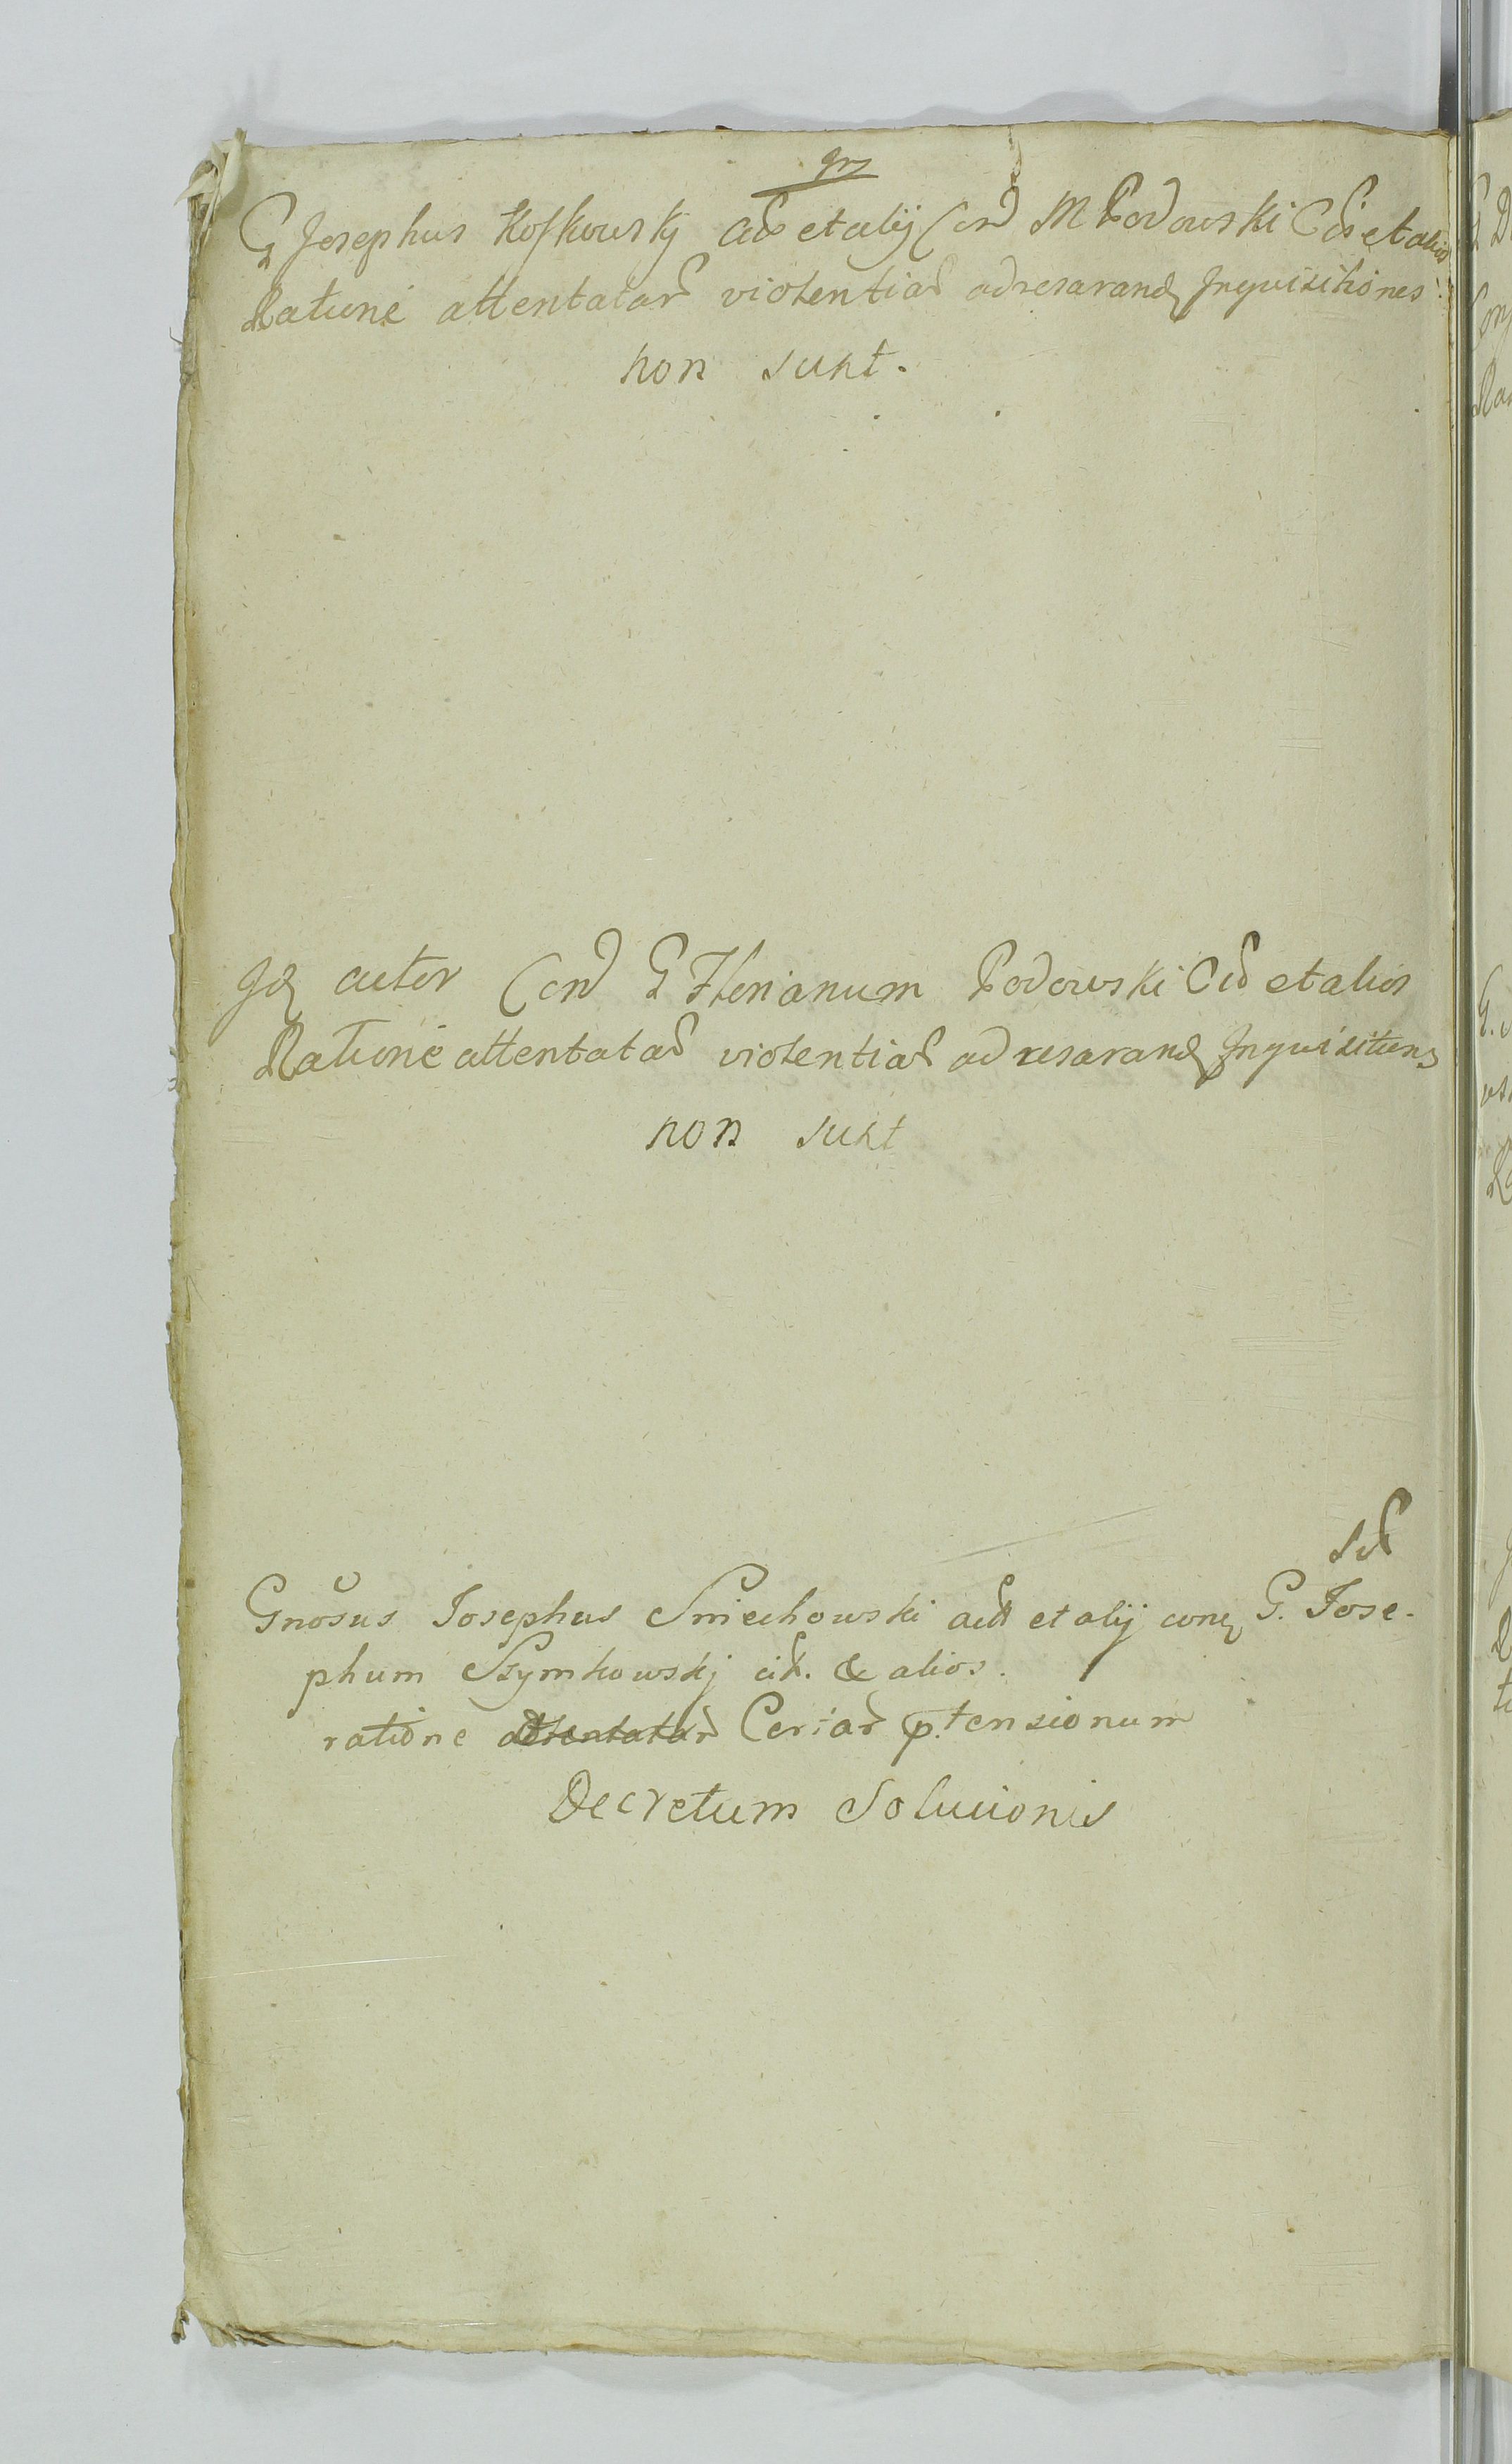 grs
G Josephus Koskowskj Act et alij Con M Podowski Cit et alios
Ratione attentatar violentiar ad resarand Inquisitiones
non sunt.
Id actor Con G Florianum Podowski Cit et alios
Ratione attentatar violentiar ad resarand Inquisitiones
non sunt
Sol
Gnosus Josephus Smiechowski act et alij con G. Jose-
phum Szymkowskj cit. & alios.
ratione attentatar Certar p.tensionum
Decretum Solucionis